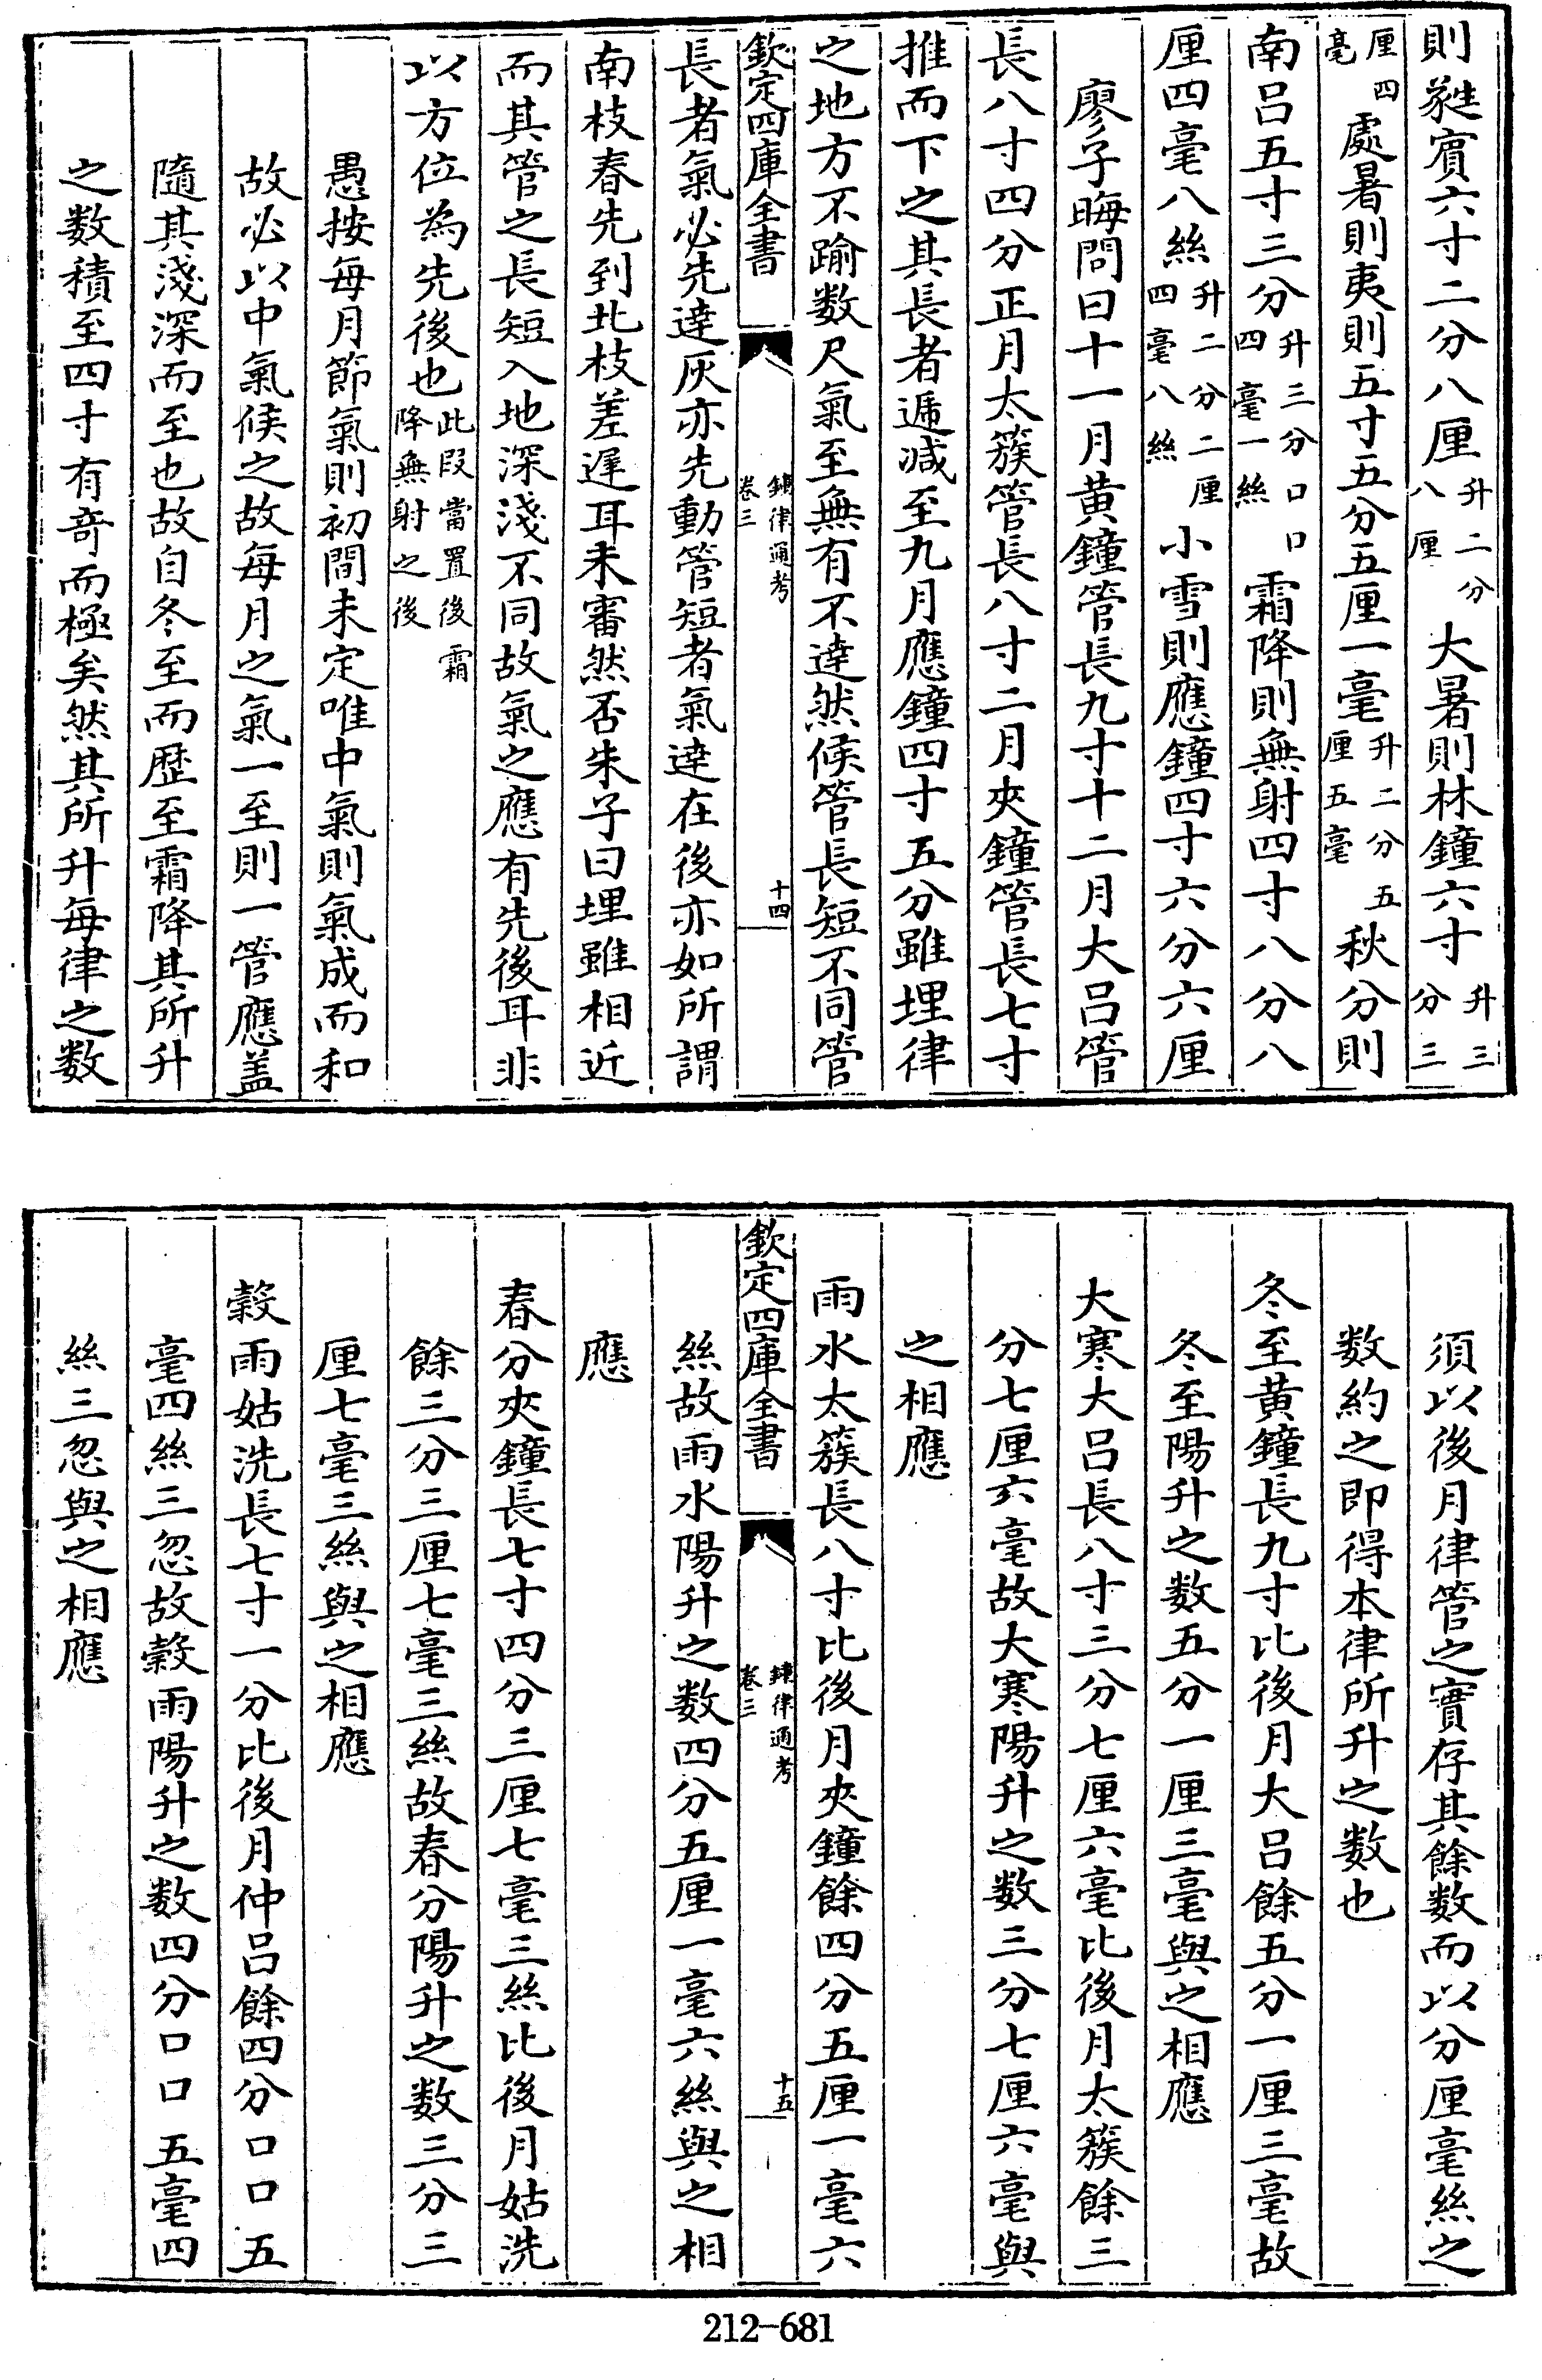 則蕤賔六寸二分八厘升二分八厘大暑則林鐘六寸升三分三
厘四毫處暑則夷則五寸五分五厘一毫升二分五厘五毫秋分則
南呂五寸三分升三分口口四毫一絲霜降則無射四寸八分八
厘四毫八絲升二分二厘四毫八絲小雪則應鐘四寸六分六厘
廖子晦問曰十一月黄鐘管長九寸十二月大呂管
長八寸四分正月太簇管長八寸二月夾鐘管長七寸
推而下之其長者遞減至九月應鐘四寸五分雖埋律
之地方不踰数尺氣至無有不達然候管長短不同管
欽定四庫全書
鍾律通考
卷三
十四
長者氣必先達灰亦先動管短者氣達在後亦如所謂
南枝春先到北枝差遲耳未審然否朱子曰埋雖相近
而其管之長短入地深淺不同故氣之應有先後耳非
以方位為先後也此段當置後霜降無射之後
愚按每月節氣則初間未定唯中氣則氣成而和
故必以中氣候之故每月之氣一至則一管應盖
隨其淺深而至也故自冬至而歴至霜降其所升
之数積至四寸有奇而極矣然其所升每律之数
須以後月律管之實存其餘数而以分厘毫絲之
数約之即得本律所升之数也
冬至黄鐘長九寸比後月大呂餘五分一厘三毫故
冬至陽升之数五分一厘三毫與之相應
大寒大呂長八寸三分七厘六毫比後月太簇餘三
分七厘六毫故大寒陽升之数三分七厘六毫與
之相應
雨水太簇長八寸比後月夾鐘餘四分五厘一毫六
欽定四庫全書
鍾律通考
卷三
十五
絲故雨水陽升之数四分五厘一毫六絲與之相
應
春分夾鐘長七寸四分三厘七毫三絲比後月姑洗
餘三分三厘七毫三絲故春分陽升之数三分三
厘七毫三絲與之相應
穀雨姑洗長七寸一分比後月仲呂餘四分口口五
毫四絲三忽故穀雨陽升之数四分口口五毫四
絲三忽與之相應
212-681